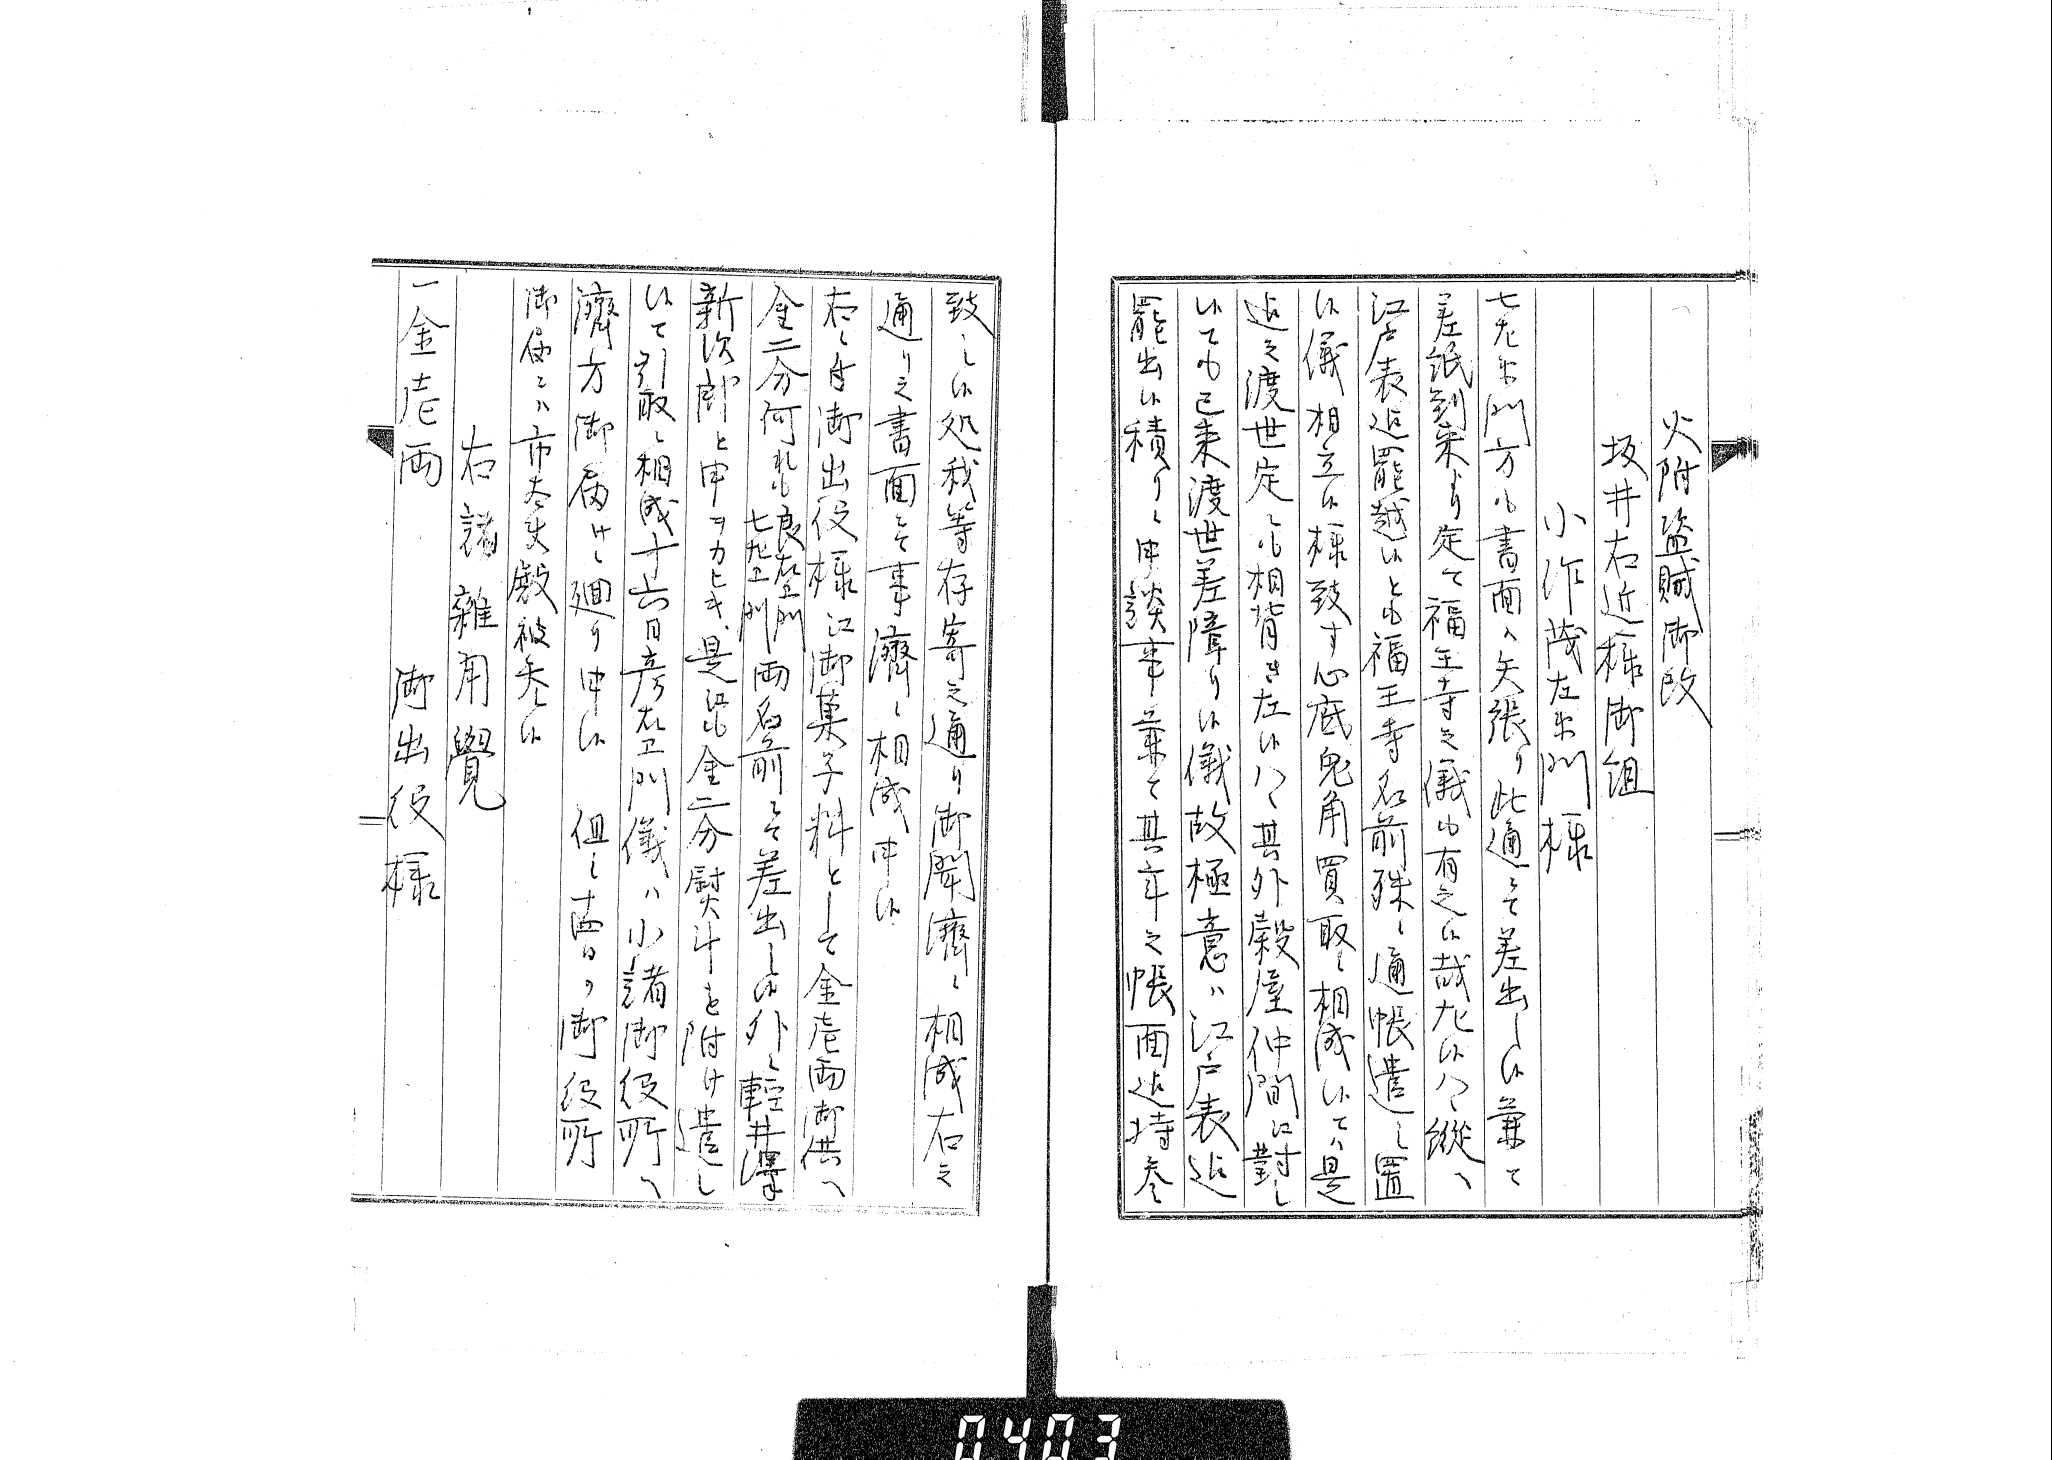 火附盗賊御改
坂井右近様御組
小作茂左エ門様
七九エ門方も書面ハ矢張り此通ニて差出し候兼て
差紙到来より定て福王寺之儀も有之候哉尤候ハヽ縦へ
江戸表迄罷越候とも福王寺名前殊ニ通帳遣し置
候儀相立候様致す心底兎角買取ニ相成候てハ是
迄之渡世定ニも相背き左候ハヽ其外穀屋仲間江對し
候ても已来渡世差障り候儀故極意ハ江戸表迄
罷出候積りニ申談事兼て其年之帳面迄持参
致し候処我等存寄之通り御聞濟ニ相成右之
通り之書面ニて事濟ニ相成申候
右ニ付御出役様江御菓子料として金壱両御供へ
金二分何れも良右エ門七九エ門両名前ニて差出し候外ニ輕井澤
新次郎と申ヲカヒキ、是江も金二分熨斗を附け遣し
候て引取ニ相成十六日彦右エ門儀ハ小諸御役所へ
濟方御届けニ廻り申候 但し 御役所
御届ニハ市太夫殿被参候
右諸雑用覺
一金壱両 御出役様
0403